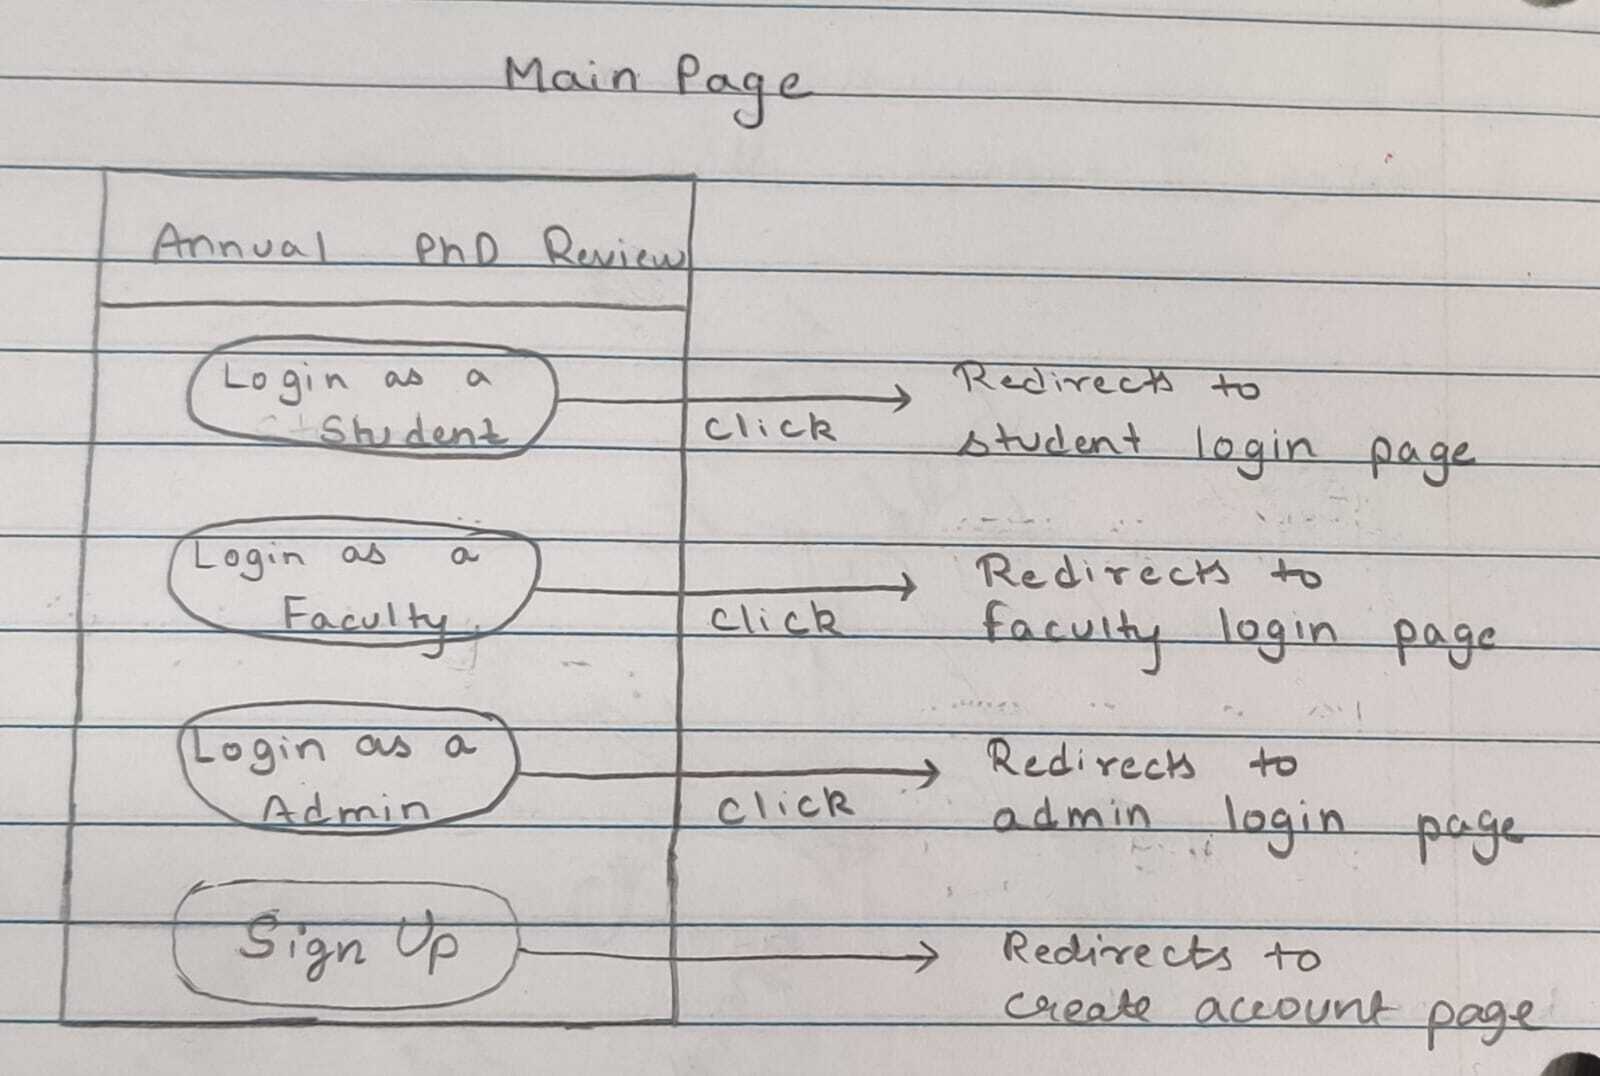 Main Page
Annual PhD Review
Login as a
Student
Click
Redirects to
student login page
Login as a
Faculty
Click
Redirects to
faculty login page
Login as a
Admin
Click
Redirects to
admin login page
Sign Up
Redirects to
create account page